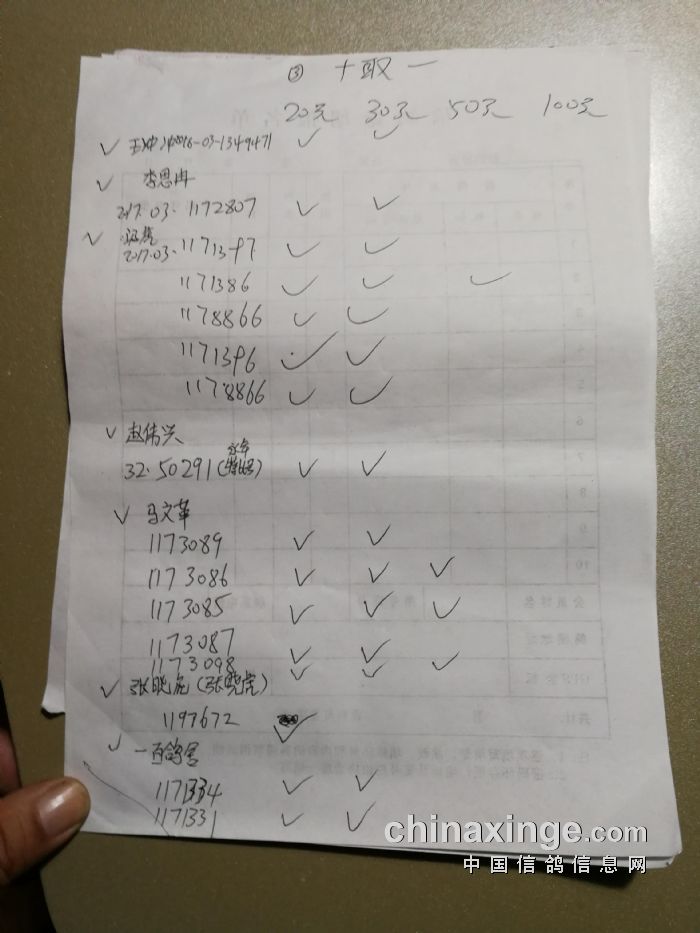 ③ 十取一
20元 30元 50元 100元
✓ 王冲冲2016-03-1349471 ✓ ✓
✓ 李思冉
2017.03.1172807 ✓ ✓
✓
2017.03.1171397 ✓ ✓
1171386 ✓ ✓ ✓
1178866 ✓ ✓
1171396 ✓ ✓
1178866 ✓ ✓
✓ 赵伟兴
32.50291(特比号) ✓ ✓
✓ 马文革
1173089 ✓ ✓
1173086 ✓ ✓ ✓
1173085 ✓ ✓ ✓
1173087 ✓ ✓
1173098 ✓ ✓ ✓
✓ 张晓虎(张晓虎)
1197672 ✓
✓ 一百鸽舍
1171334 ✓ ✓
1171331 ✓ ✓
chinaxinge.com
中国信鸽信息网